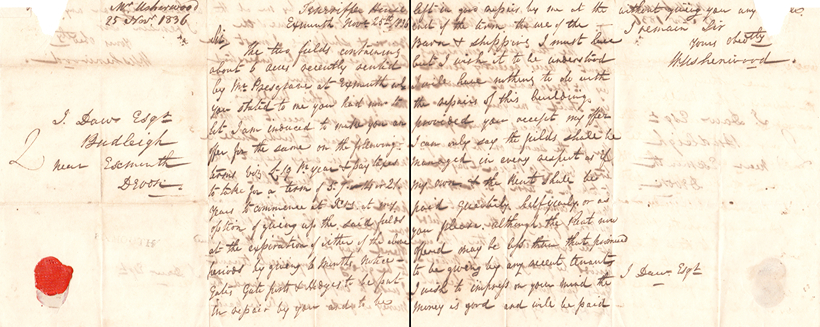 Mr Usherwood
25 Novr. 1836
J. Daw Esqr
Budleigh
near Exmouth
Devon
2
House
Exmouth Novr 25th 1836
Sir
The two fields containing
about 5 acres recently rented
by Mr Presgrave at Exmouth and
you stated to me you had now to
let. I am induced to make you an
offer for the same on the following
terms £19 Pr year & pay taxes
to take for a term of 5, 7, 14 or 21
years to commence at at my
option of giving up the said fields
at the expiration of either of the above
periods by giving 6 Months notice
Gate, Gate posts & Hedges to be put
in repair by you and to be
left in good repair by me at the
end of the term the use of the
Barn & shippins I must have
but I wish it to be understood
I will have nothing to do with
the repairs of this building.
provided you accept my offer
I can only say the fields shall be
managed in every respect as if
my own & the Rent shall be
paid quarterly, half yearly or as
you please. although the Rent now
offered may be less than that promised
to be given by any recent tenants
I wish to impress on your mind the
money is good and will be paid
without giving you any
I remain Sir
Yours obedtly
W Usherwood
J Daw Esqr